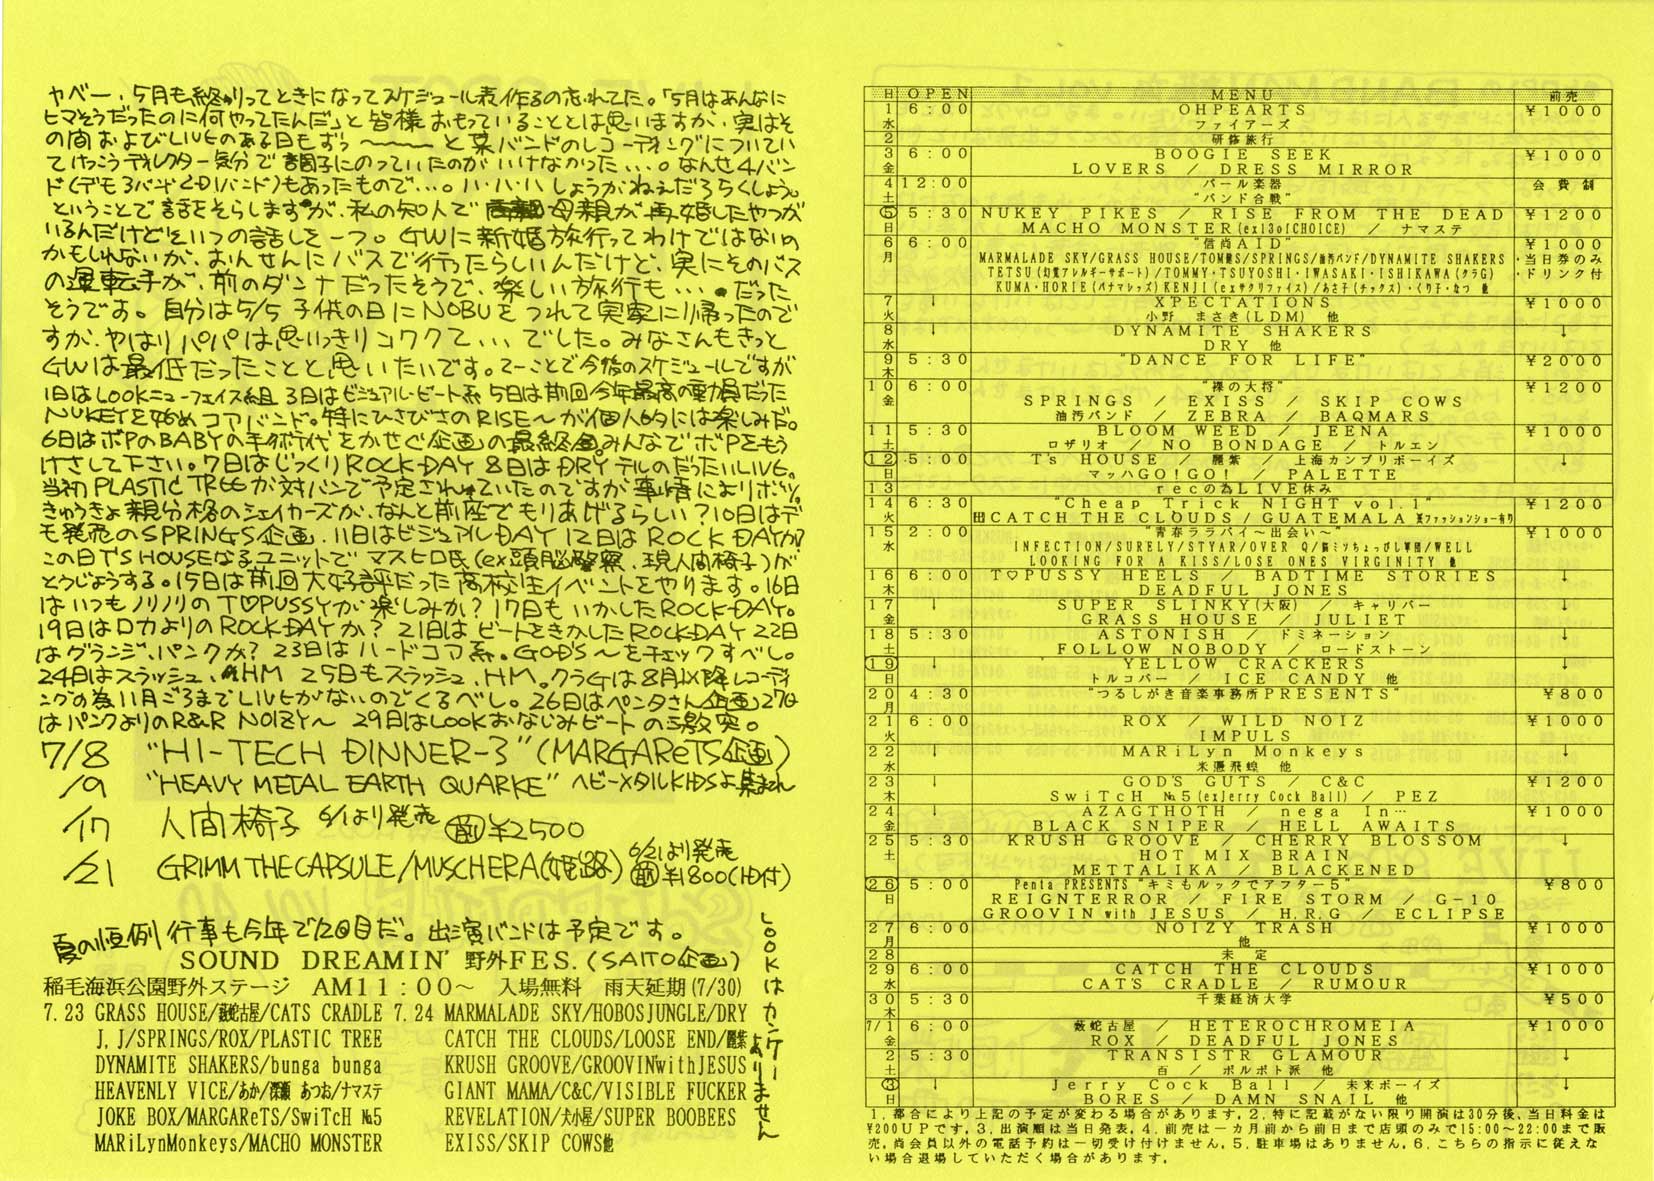 ヤベー、5月も終わりってときになってスケジュール表作るの忘れてた。「5月はあんなに
ヒマそうだったのに何やってたんだ」と皆様おもっていることとは思いますが、実はそ
の間およびLIVEのある日もずぅ〜〜〜と某バンドのレコーディングについてい
てけっこうディレクター気分で調子にのっていたのがいけなかった…。なんせ4バン
ド(デモ3バンドCD1バンド)もあったもので…。ハ・ハ・ハしょうがねぇだろちくしょう。
ということで話をそらしますが、私の知人で 母親が再婚したやつが
いるんだけどそいつの話しを一つ。GWに新婚旅行ってわけではないの
かもしれないが、おんせんにバスで行ったらしいんだけど、実にそのバス
の運転手が、前のダンナだったそうで、楽しい旅行も…だった
そうです。自分は5/5子供の日にNOBUをつれて実家に帰ったので
すが、やはりパパは思いっきりコワクて…でした。みなさんもきっと
GWは最低だったことと思いたいです。てーことで今後のスケジュールですが
1日はLOOKニューフェイス組 3日はビジュアル・ビート系 5日は前回今年最高の動員だった
NUKEYを始めコアバンド。特にひさびさのRISE〜が個人的には楽しみだ。
6日はボPのBABYの手術代をかせぐ企画の最終回。みんなでボPをもう
けさして下さい。7日はじっくりROCK-DAY 8日はDRYテルのだったいLIVE。
当初PLASTIC TREEが対バンで予定されていたのですが事情によりボツ。
きゅうきょ親分格のシェイカーズが、なんと前座でもりあげるらしい?10日はデ
モ発売のSPRINGS企画、11日はビジュアルDAY 12日はROCK DAYか?
この日T'S HOUSEなるユニットでマスヒロ氏(ex頭脳警察、現人間椅子)が
とうじょうする。15日は前回大好評だった高校生イベントをやります。16日
はいつもノリノリのT♡PUSSYが楽しみか?17日もいかしたROCK-DAY。
19日はロカよりのROCK-DAYか? 21日はビートをきかしたROCK-DAY 22日
はグランジ、パンクか? 23日はハードコア系。GOD'S〜をチェックすべし。
24日はスラッシュ、HM 25日もスラッシュ、HM。クラGは8月以降レコーディ
ングの為11月ごろまでLIVEがないのでくるべし。26日はペンタさん企画 27日
はパンクよりのR&R NOIZY〜 29日はLOOKおなじみビートの三激突。
7/8 "HI-TECH DINNER-3" (MARGAReTS企画)
/9 "HEAVY METAL EARTH QUARKE" ヘビーメタルKIDSよ集まれ
/17 人間椅子 6/1より発売 前¥2500
/21 GRIMM THE CAPSULE/MUSCHERA(姫路) 6/21より発売 前¥1800(1D付)
夏の恒例行事も今年で12回目だ。出演バンドは予定です。
SOUND DREAMIN' 野外FES.(SAITO企画)
LOOKはカンケーありません
稲毛海浜公園野外ステージ AM11:00〜 入場無料 雨天延期(7/30)
7.23 GRASS HOUSE/薮蛇古屋/CATS CRADLE 7.24 MARMALADE SKY/HOBOSJUNGLE/DRY
J,J/SPRINGS/ROX/PLASTIC TREE CATCH THE CLOUDS/LOOSE END/麗紫
DYNAMITE SHAKERS/bunga bunga KRUSH GROOVE/GROOVINwithJESUS
HEAVENLY VICE/あか/深瀬 あつお/ナマステ GIANT MAMA/C&C/VISIBLE FUCKER
JOKE BOX/MARGAReTS/SwiTcH №5 REVELATION/犬小屋/SUPER BOOBEES
MARiLynMonkeys/MACHO MONSTER EXISS/SKIP COWS他
日 OPEN MENU 前売
1 6:00 OHPEARTS ¥1000
水 ファイアーズ
2 研修旅行
3 6:00 BOOGIE SEEK ¥1000
金 LOVERS / DRESS MIRROR
4 12:00 パール楽器 会費制
土 "バンド合戦"
5 5:30 NUKEY PIKES / RISE FROM THE DEAD ¥1200
日 MACHO MONSTER(ex13ofCHOICE) / ナマステ
6 6:00 "信尚AID" ¥1000
月 MARMALADE SKY/GRASS HOUSE/TOM勝S/SPRINGS/油汚バンド/DYNAMITE SHAKERS ・当日券のみ
TETSU(幻覚アレルギーサポート)/TOMMY・TSUYOSHI・IWASAKI・ISHIKAWA(クラG) ・ドリンク付
KUMA・HORIE(パナマレッズ)KENJI(exサクリファイス)/あさ子(チックス)・くり子・なつ 他
7 ↓ XPECTATIONS ¥1000
火 小野 まさき(LDM) 他
8 ↓ DYNAMITE SHAKERS ↓
水 DRY 他
9 5:30 "DANCE FOR LIFE" ¥2000
木
10 6:00 "裸の大将" ¥1200
金 SPRINGS / EXISS / SKIP COWS
油汚バンド / ZEBRA / BAQMARS
11 5:30 BLOOM WEED / JEENA ¥1000
土 ロザリオ / NO BONDAGE / トルエン
12 5:00 T's HOUSE / 麗紫 / 上海カンプリボーイズ ↓
日 マッハGO!GO! / PALETTE
13 recの為LIVE休み
14 6:30 "Cheap Trick NIGHT vol.1" ¥1200
火 出CATCH THE CLOUDS/GUATEMALA 他ファッションショー有り
15 2:00 "青春ララバイ〜出会い〜" ¥1000
水 INFECTION/SURELY/STYAR/OVER Q/脳ミソちょっぴし軍団/WELL
LOOKING FOR A KISS/LOSE ONES VIRGINITY 他
16 6:00 T♡PUSSY HEELS / BADTIME STORIES ↓
木 DEADFUL JONES
17 ↓ SUPER SLINKY(大阪) / キャリバー ↓
金 GRASS HOUSE / JULIET
18 5:30 ASTONISH / ドミネーション ↓
土 FOLLOW NOBODY / ロードストーン
19 ↓ YELLOW CRACKERS ↓
日 トルコバー / ICE CANDY 他
20 4:30 "つるしがき音楽事務所PRESENTS" ¥800
月
21 6:00 ROX / WILD NOIZ ¥1000
火 IMPULS
22 ↓ MARiLyn Monkeys ↓
水 米澱飛蝗 他
23 ↓ GOD'S GUTS / C&C ¥1200
木 SwiTcH №5(exJerry Cock Ball) / PEZ
24 ↓ AZAGTHOTH / nega In… ¥1000
金 BLACK SNIPER / HELL AWAITS
25 5:30 KRUSH GROOVE / CHERRY BLOSSOM ↓
土 HOT MIX BRAIN
METTALIKA / BLACKENED
26 5:00 Penta PRESENTS "キミもルックでアフター5" ¥800
日 REIGNTERROR / FIRE STORM / G-10
GROOVIN with JESUS / H.R.G / ECLIPSE
27 6:00 NOIZY TRASH ¥1000
月 他
28 未定
29 6:00 CATCH THE CLOUDS ¥1000
水 CAT'S CRADLE / RUMOUR
30 5:30 千葉経済大学 ¥500
木
7/1 6:00 薮蛇古屋 / HETEROCHROMEIA ¥1000
金 ROX / DEADFUL JONES
2 5:30 TRANSISTR GLAMOUR ↓
土 百 / ポルポト派 他
3 ↓ Jerry Cock Ball / 未来ボーイズ ↓
日 BORES / DAMN SNAIL 他
1.都合により上記の予定が変わる場合があります。2.特に記載がない限り開演は30分後、当日料金は
¥200UPです。3.出演順は当日発表。4.前売は一カ月前から前日まで店頭のみで15:00〜22:00まで販
売。尚会員以外の電話予約は一切受け付けません。5.駐車場はありません。6.こちらの指示に従えな
い場合退場していただく場合があります。